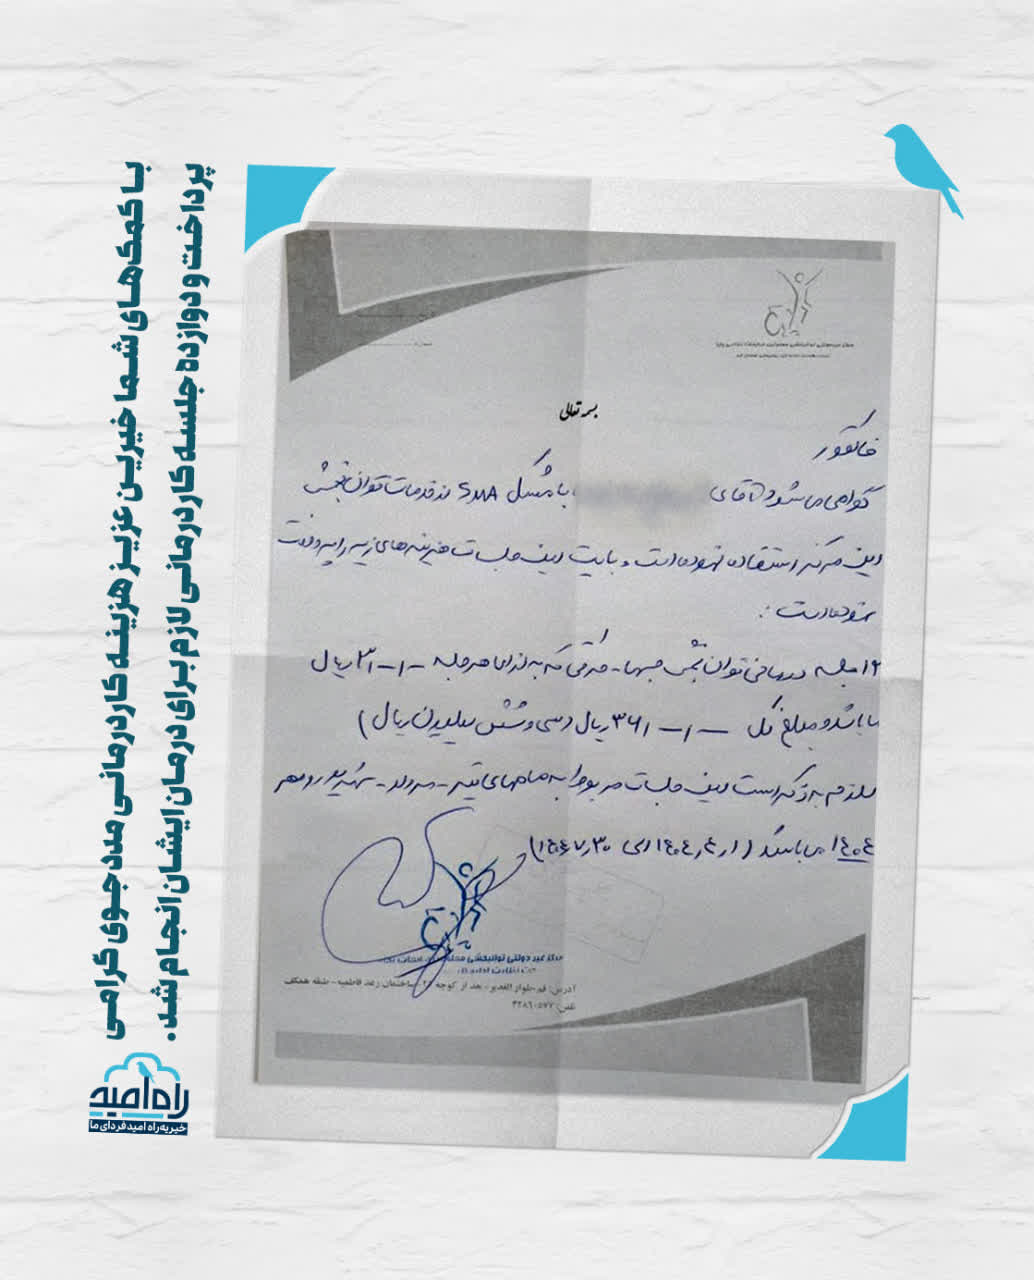 با کمک‌های شما خیرین عزیز هزینه کاردرمانی مددجوی گرامی
پرداخت و دوازده جلسه کاردرمانی لازم برای درمان ایشان انجام شد.
راه امید
خیریه راه امید فردای ما
بسمه تعالی
فاکتور
گواهی می شود آقای با مشکل SMA از خدمات توان بخشی
این مرکز استفاده نموده است و بابت این جلسات هزینه های زیر را پرداخت
نموده است :
۱۲ جلسه توان بخشی جسمی - حرکتی که به ازای هر جلسه ریال
می باشد و مبلغ کل ریال (سی و شش میلیون ریال)
لازم به ذکر است این جلسات مربوط به ماههای تیر - مرداد - شهریور و مهر
۱۴۰۴ می باشد
مرکز غیر دولتی توانبخشی
آدرس: قم-بلوار الغدیر- بعد از کوچه ساختمان رعد فاطمیه- طبقه همکف
تلفن: ۳۲۸۶۰۵۷۷